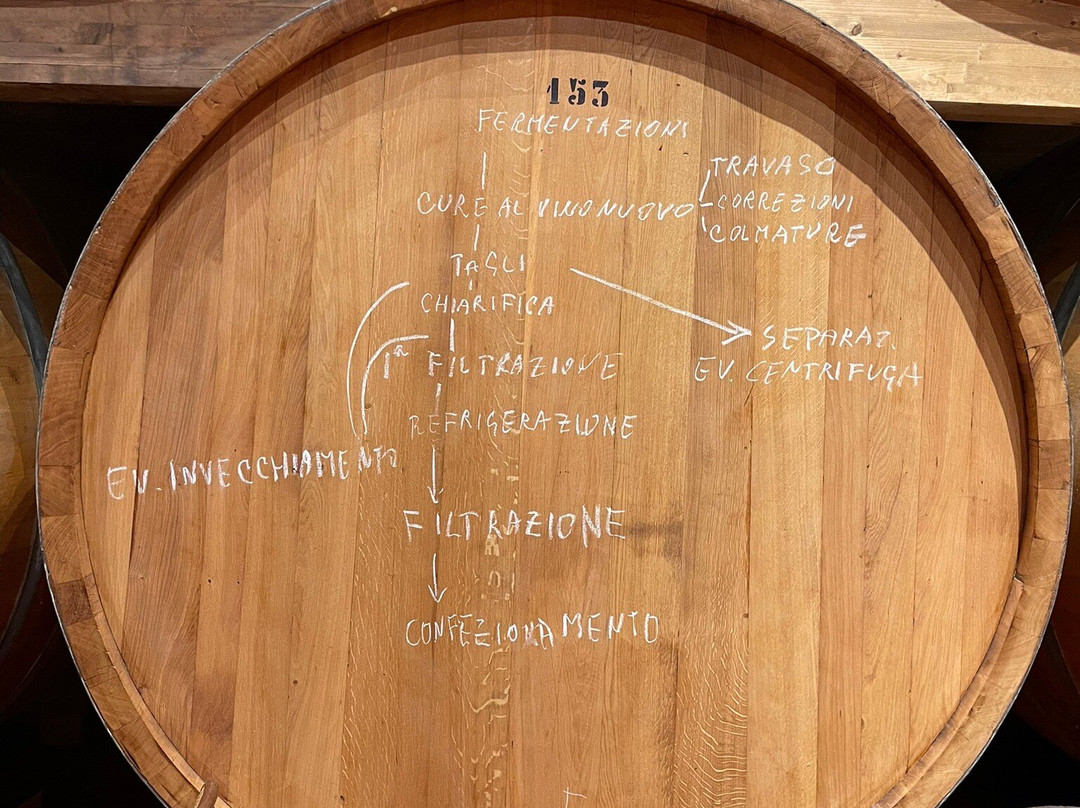 153
FERMENTAZIONI
TRAVASO
CURE AL VINO NUOVO
CORREZIONI
COLMATURE
TAGLI
CHIARIFICA
SEPARAZ.
1ª FILTRAZIONE
EV. CENTRIFUGA
REFRIGERAZIONE
EV. INVECCHIAMENTO
FILTRAZIONE
CONFEZIONAMENTO